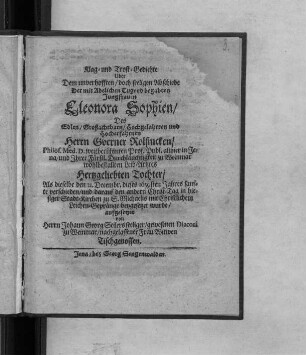 Klag- und Trost-Gedichte
Uber
Dem unverhofften / doch seligen Abschiede
Der mit Adelichen Tugend begabten
Jungfrauen
Eleonora Sophien /
Des
Edlen / Großachtbarn / Hochgelahrten und
Hocherfahrnen
Herrn Guerner Rolfincken /
Philos. Med. D. weitberühmten Prof. Publ. allhier in Je-
na / und Ihrer Fürstl. Durchläuchtigkeit zu Weimar
wohlbestallten Leib-Artztes
Hertzgeliebten Tochter /
Als dieselbe den 21. Decembr. dieses Jahrs sanf-
te verschieden / und darauf den andern Christ-Tag in hie-
siger Stadt-Kirchen zu S. Michaelis mit Christlichem
Leichen-Gepränge beygesetzet wurde /
auffgesetzet
von
Herrn Johann Georg seligen / gewesenen Diaconi
zu Weimar / nachgelassner Frau Witwen
Tischgenossen.
Jena / bey Georg Sengenwaldten.